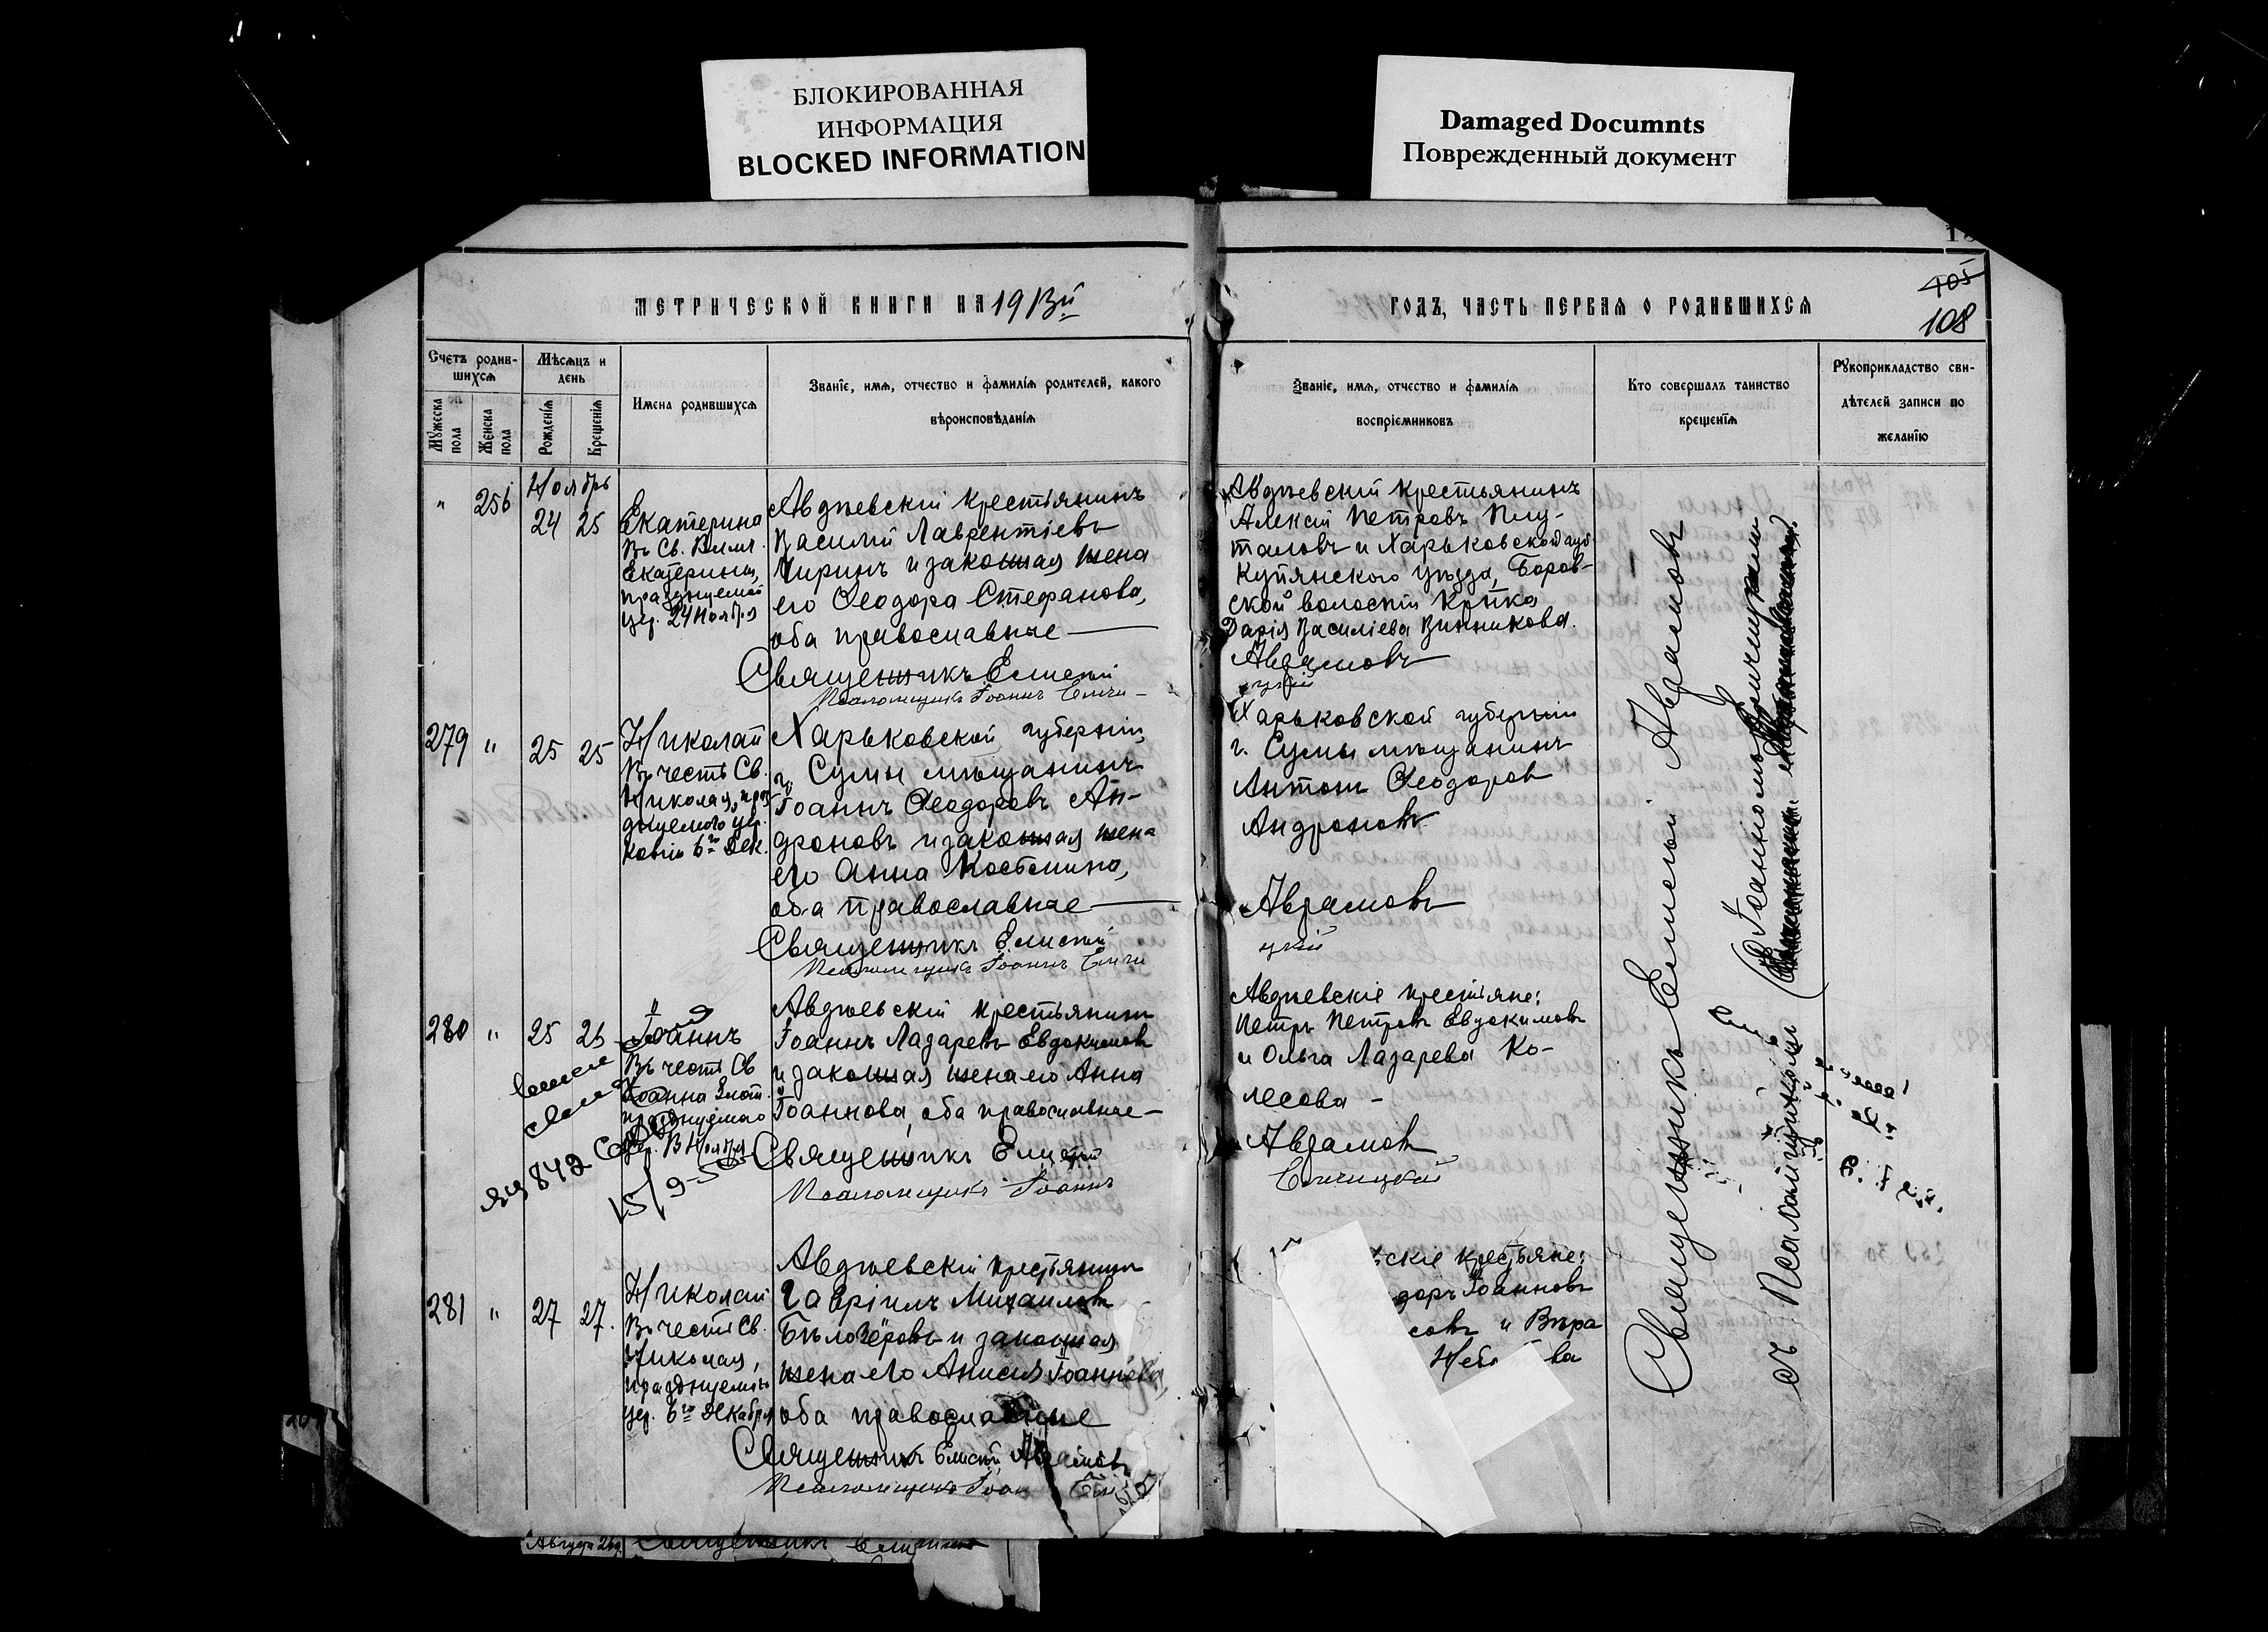 БЛОКИРОВАННАЯ
ИНФОРМАЦИЯ
BLOCKED INFORMATION
Damaged Documnts
Поврежденный документ
МЕТРИЧЕСКОЙ КНИГИ НА 1913й
ГОДЪ, ЧАСТЬ ПЕРВАЯ О РОДИВШИХСЯ
105
108
Счетъ родив-
шихся
Мужеска пола
Женска пола
Мѣсяцъ и
день
Рожденія
Крещенія
Имена родившихся
Званіе, имя, отчество и фамилія родителей, какого
вѣроисповѣданія
Званіе, имя, отчество и фамилія
воспріемниковъ
Кто совершалъ таинство
крещенія
Рукоприкладство сви-
дѣтелей записи по
желанію
Ноябрь
" 256 24 25
Екатерина
Въ Св. Велм.
Екатерины,
празднуемой
цер. 24 Ноября
Авдѣевскій крестьянинъ
Василій Лаврентіевъ
Чиринъ и законная жена
его Ѳеодора Стефанова,
оба православные
Священникъ Елисей
Псаломщикъ Іоаннъ Енчи-
Авдѣевскій крестьянинъ
Алексій Петровъ Плу-
таловъ и Харьковской губ
Купянского уѣзда, Боров-
ской волости кр-ка
Дарія Василіева Винникова.
Аврамовъ
цкій
279 " 25 25
Николай
Въ честь Св.
Николая, праз-
днуемого цер.
ковію 6го Дек.
Харьковской губерніи,
г. Сумы мѣщанинъ
Іоаннъ Ѳеодоровъ Ан-
дроновъ и законная жена
его Анна Костомина,
оба православные
Священникъ Елисей
Псаломщикъ Іоаннъ Енчи
Харьковской губерніи
г. Сумы мѣщанинъ
Антонъ Ѳеодоров
Андроновъ
Аврамовъ
цкій
280 " 25 26
Іоаннъ
Въ честь Св
Іоанна Злат.
празднуемого
цер. 13 Ноября
842
Авдѣевскій крестьянинъ
Іоаннъ Лазаревъ Евдокимовъ
и законная жена его Анна
Іоаннова, оба православные
Священникъ Елисей
Псаломщикъ Іоаннъ
Авдѣевскіе крестьяне:
Петръ Петровъ Евдокимовъ
и Ольга Лазарева Ко-
лесова -
Аврамовъ
Енчицкій
281 " 27 27.
Николай
Въ честь Св.
Николая,
празднуемого
цер. 6го Декабря
Авдѣевскій крестьянинъ
Гавріилъ Михаиловъ
Бѣлозёровъ и законная
жена его Анисія Іоаннова,
оба православные
Священникъ Елисей Аврамовъ
Псаломщикъ Іоан
скіе крестьяне:
доръ Іоанновъ
совъ и Вѣра
ва
Священникъ Елисей Аврамовъ
съ Псаломщикомъ Іоанномъ Енчицкимъ
Августа 26
Священникъ Елисей